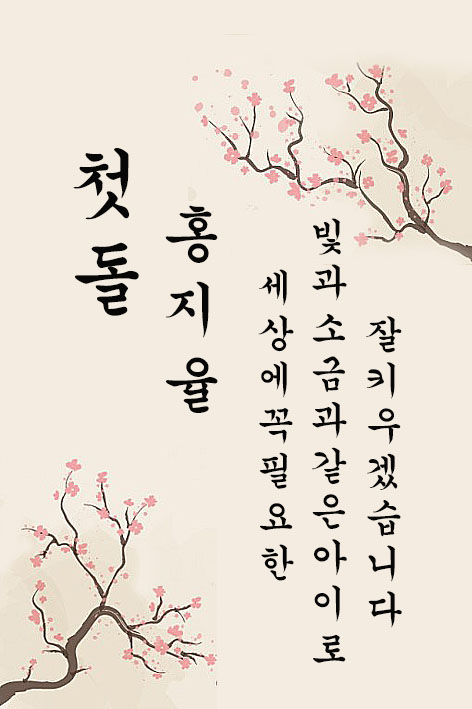 첫돌
홍지율
세상에꼭필요한
빛과소금과같은아이로
잘키우겠습니다